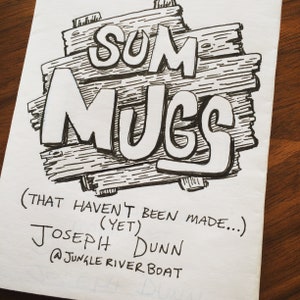 SUM
MUGS
(THAT HAVEN'T BEEN MADE...)
(YET)
JOSEPH DUNN
@JUNGLERIVERBOAT